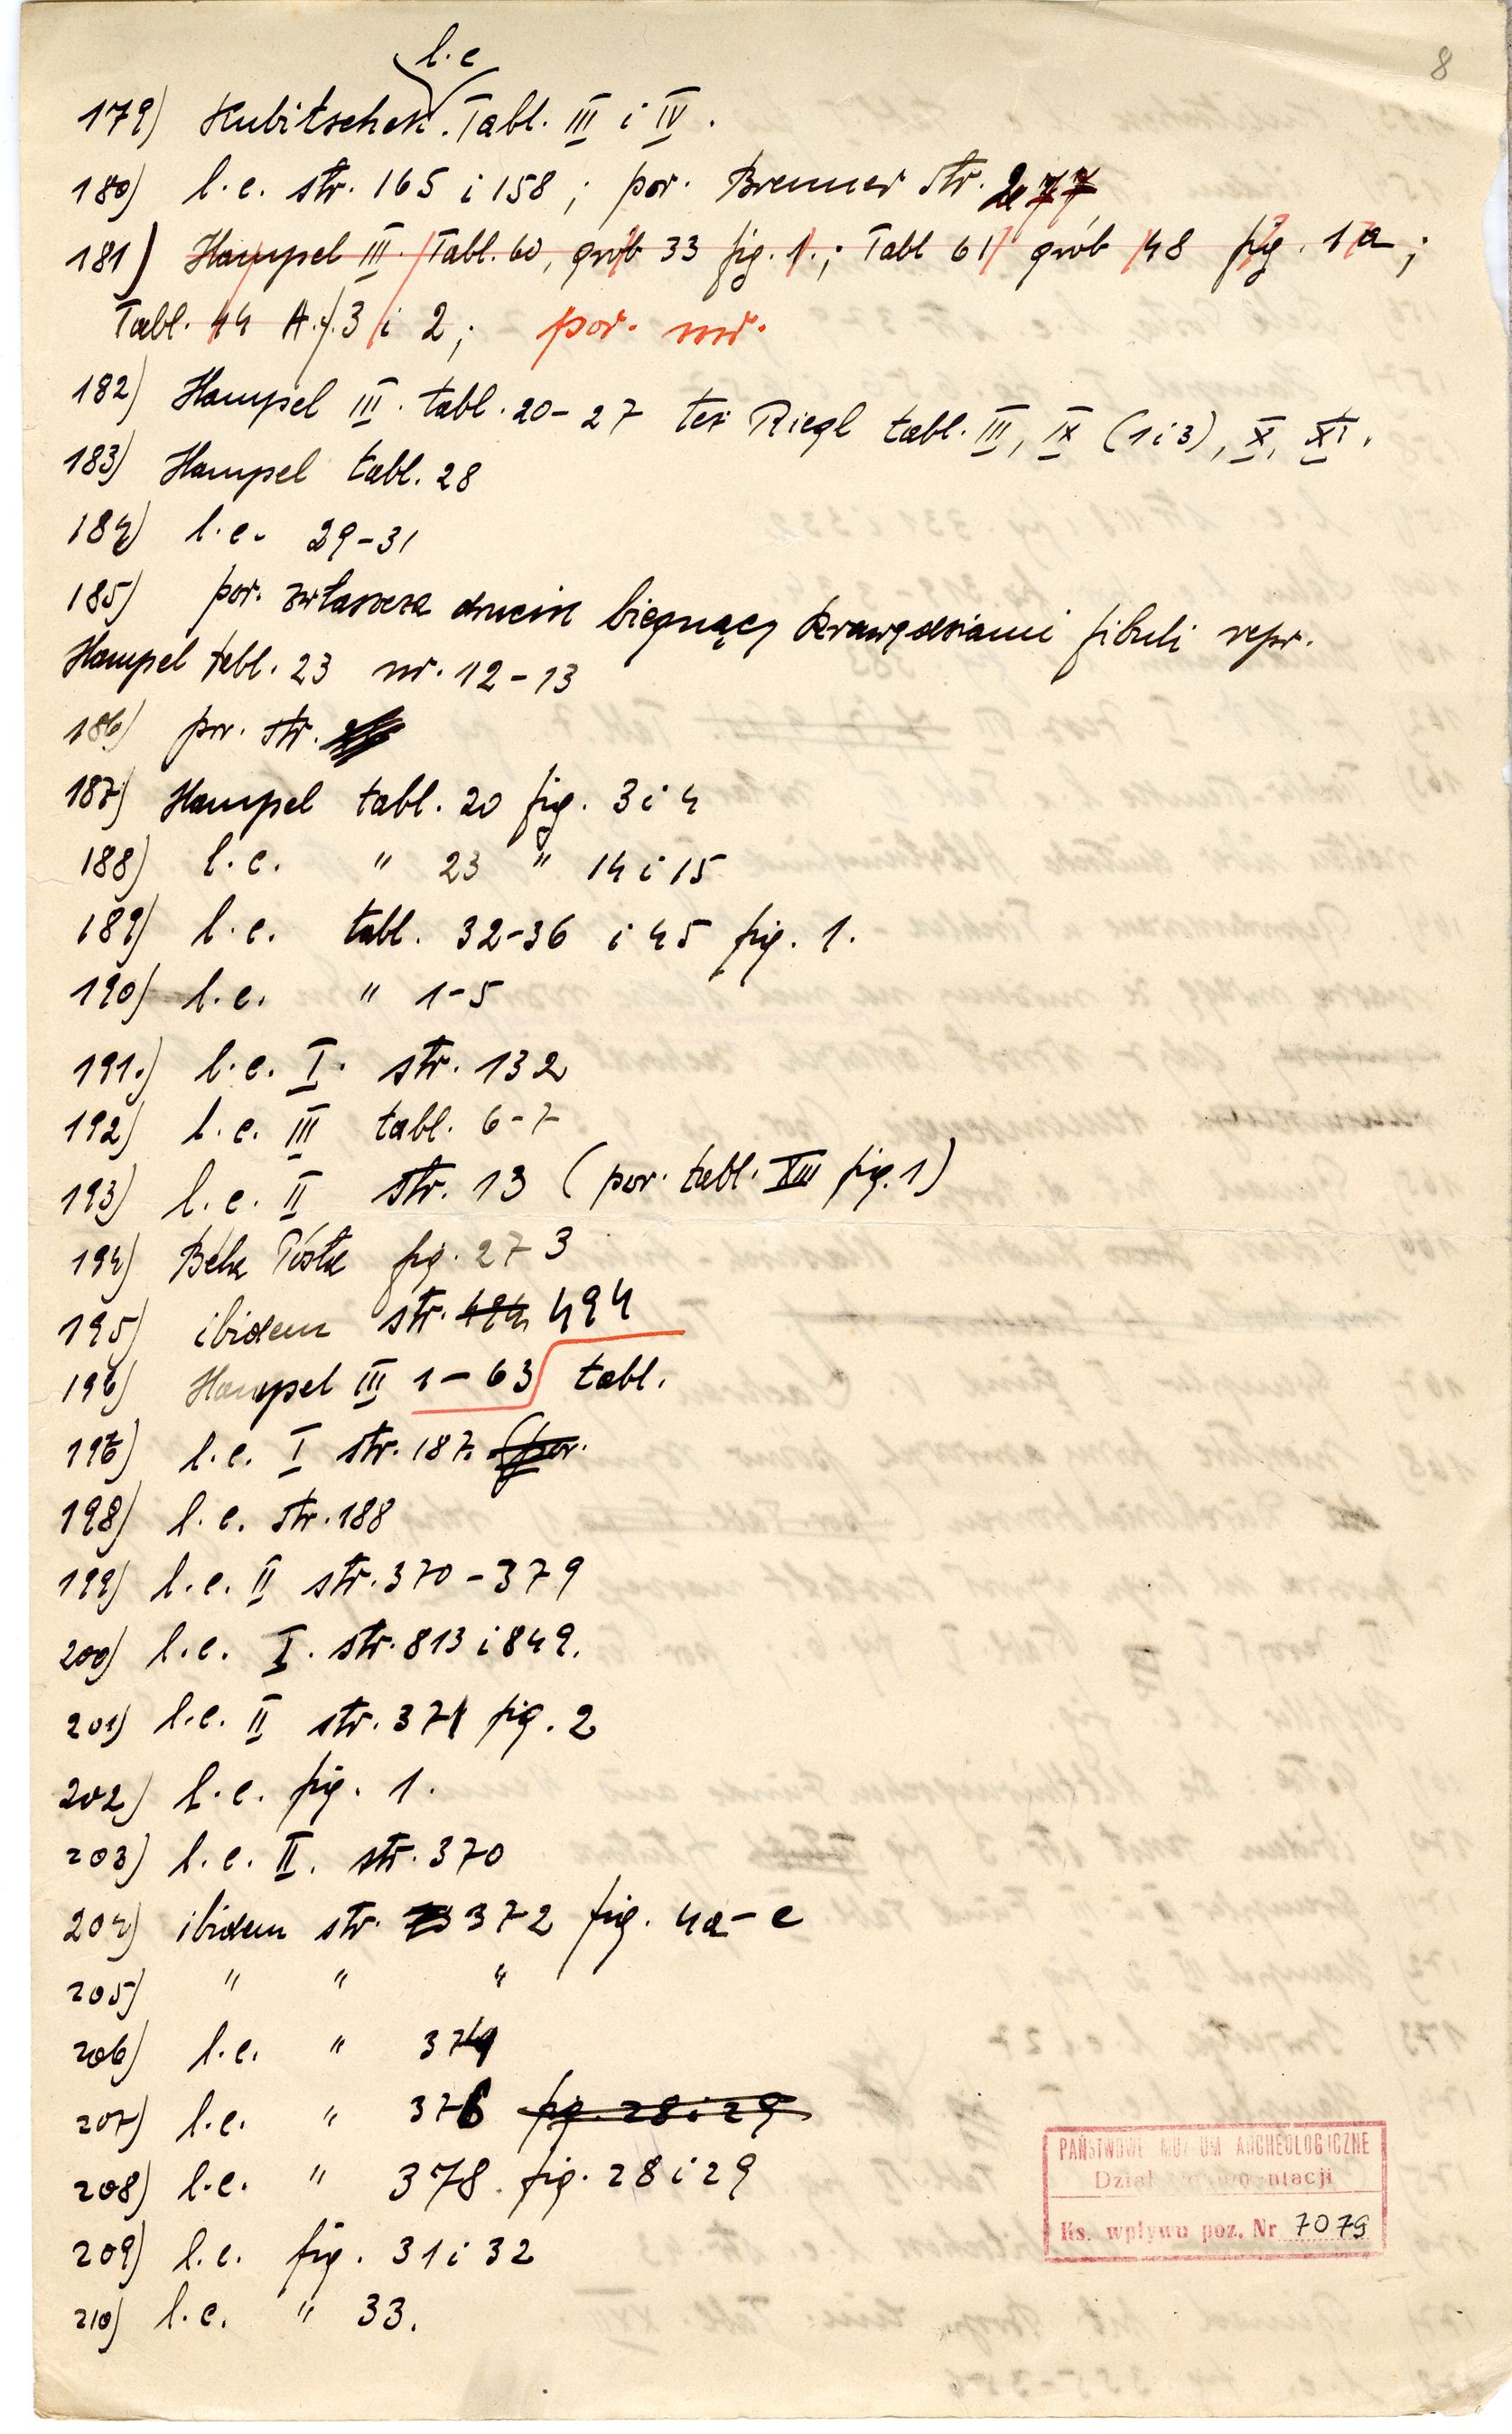 8
l.c
179) Kubitschek. Tabl. III i IV.
180) l.c. str. 165 i 158 ; por. Brenner str. 277
181) Hampel III. Tabl. 60, grób 33 fig. 1. ; Tabl 61 grób 48 fig. 1a ;
Tabl. 44 A. f. 3 i 2 ; por. nr.
182) Hampel III. tabl. 20-27 też Riegl tabl. III, IX (1 i 3), X, XI.
183) Hampel tabl. 28
184) l.c. 29-31
185) por. zwłaszcza drucik biegnący krawędziami fibuli repr.
Hampel tabl. 23 nr. 12-13
186) por. str.
187) Hampel tabl. 20 fig. 3 i 4
188) l.c. " 23 " 14 i 15
189) l.c. tabl. 32-36 i 45 fig. 1.
190) l.c. " 1-5
191.) l.c. I. str. 132
192) l.c. III tabl. 6-7
193) l.c. II str. 13 (por. tabl. XIII fig. 1)
194) Béla Pósta fig. 273
195) ibidem str. 484 494
196) Hampel III 1-63 tabl.
197) l.c. I str. 187. (por.
198) l.c. str. 188
199) l.c. II str. 370-379
200) l.c. I. str. 813 i 849.
201) l.c. II str. 371 fig. 2
202) l.c. fig. 1.
203) l.c. II. str. 370
204) ibidem str. 372 fig. 4a-c
205) " " "
206) l.c. " 374
207) l.c. " 376 fig. 28 i 29
208) l.c. " 378. fig. 28 i 29
209) l.c. fig. 31 i 32
210) l.c. " 33.
PAŃSTWOWE MUZEUM ARCHEOLOGICZNE
Dział Dokumentacji
Ks. wpływu poz. Nr 7079